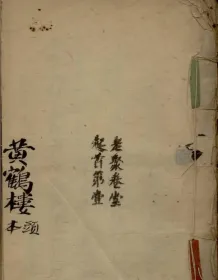 老聚卷堂
起首第壹
黃鶴樓
頭本